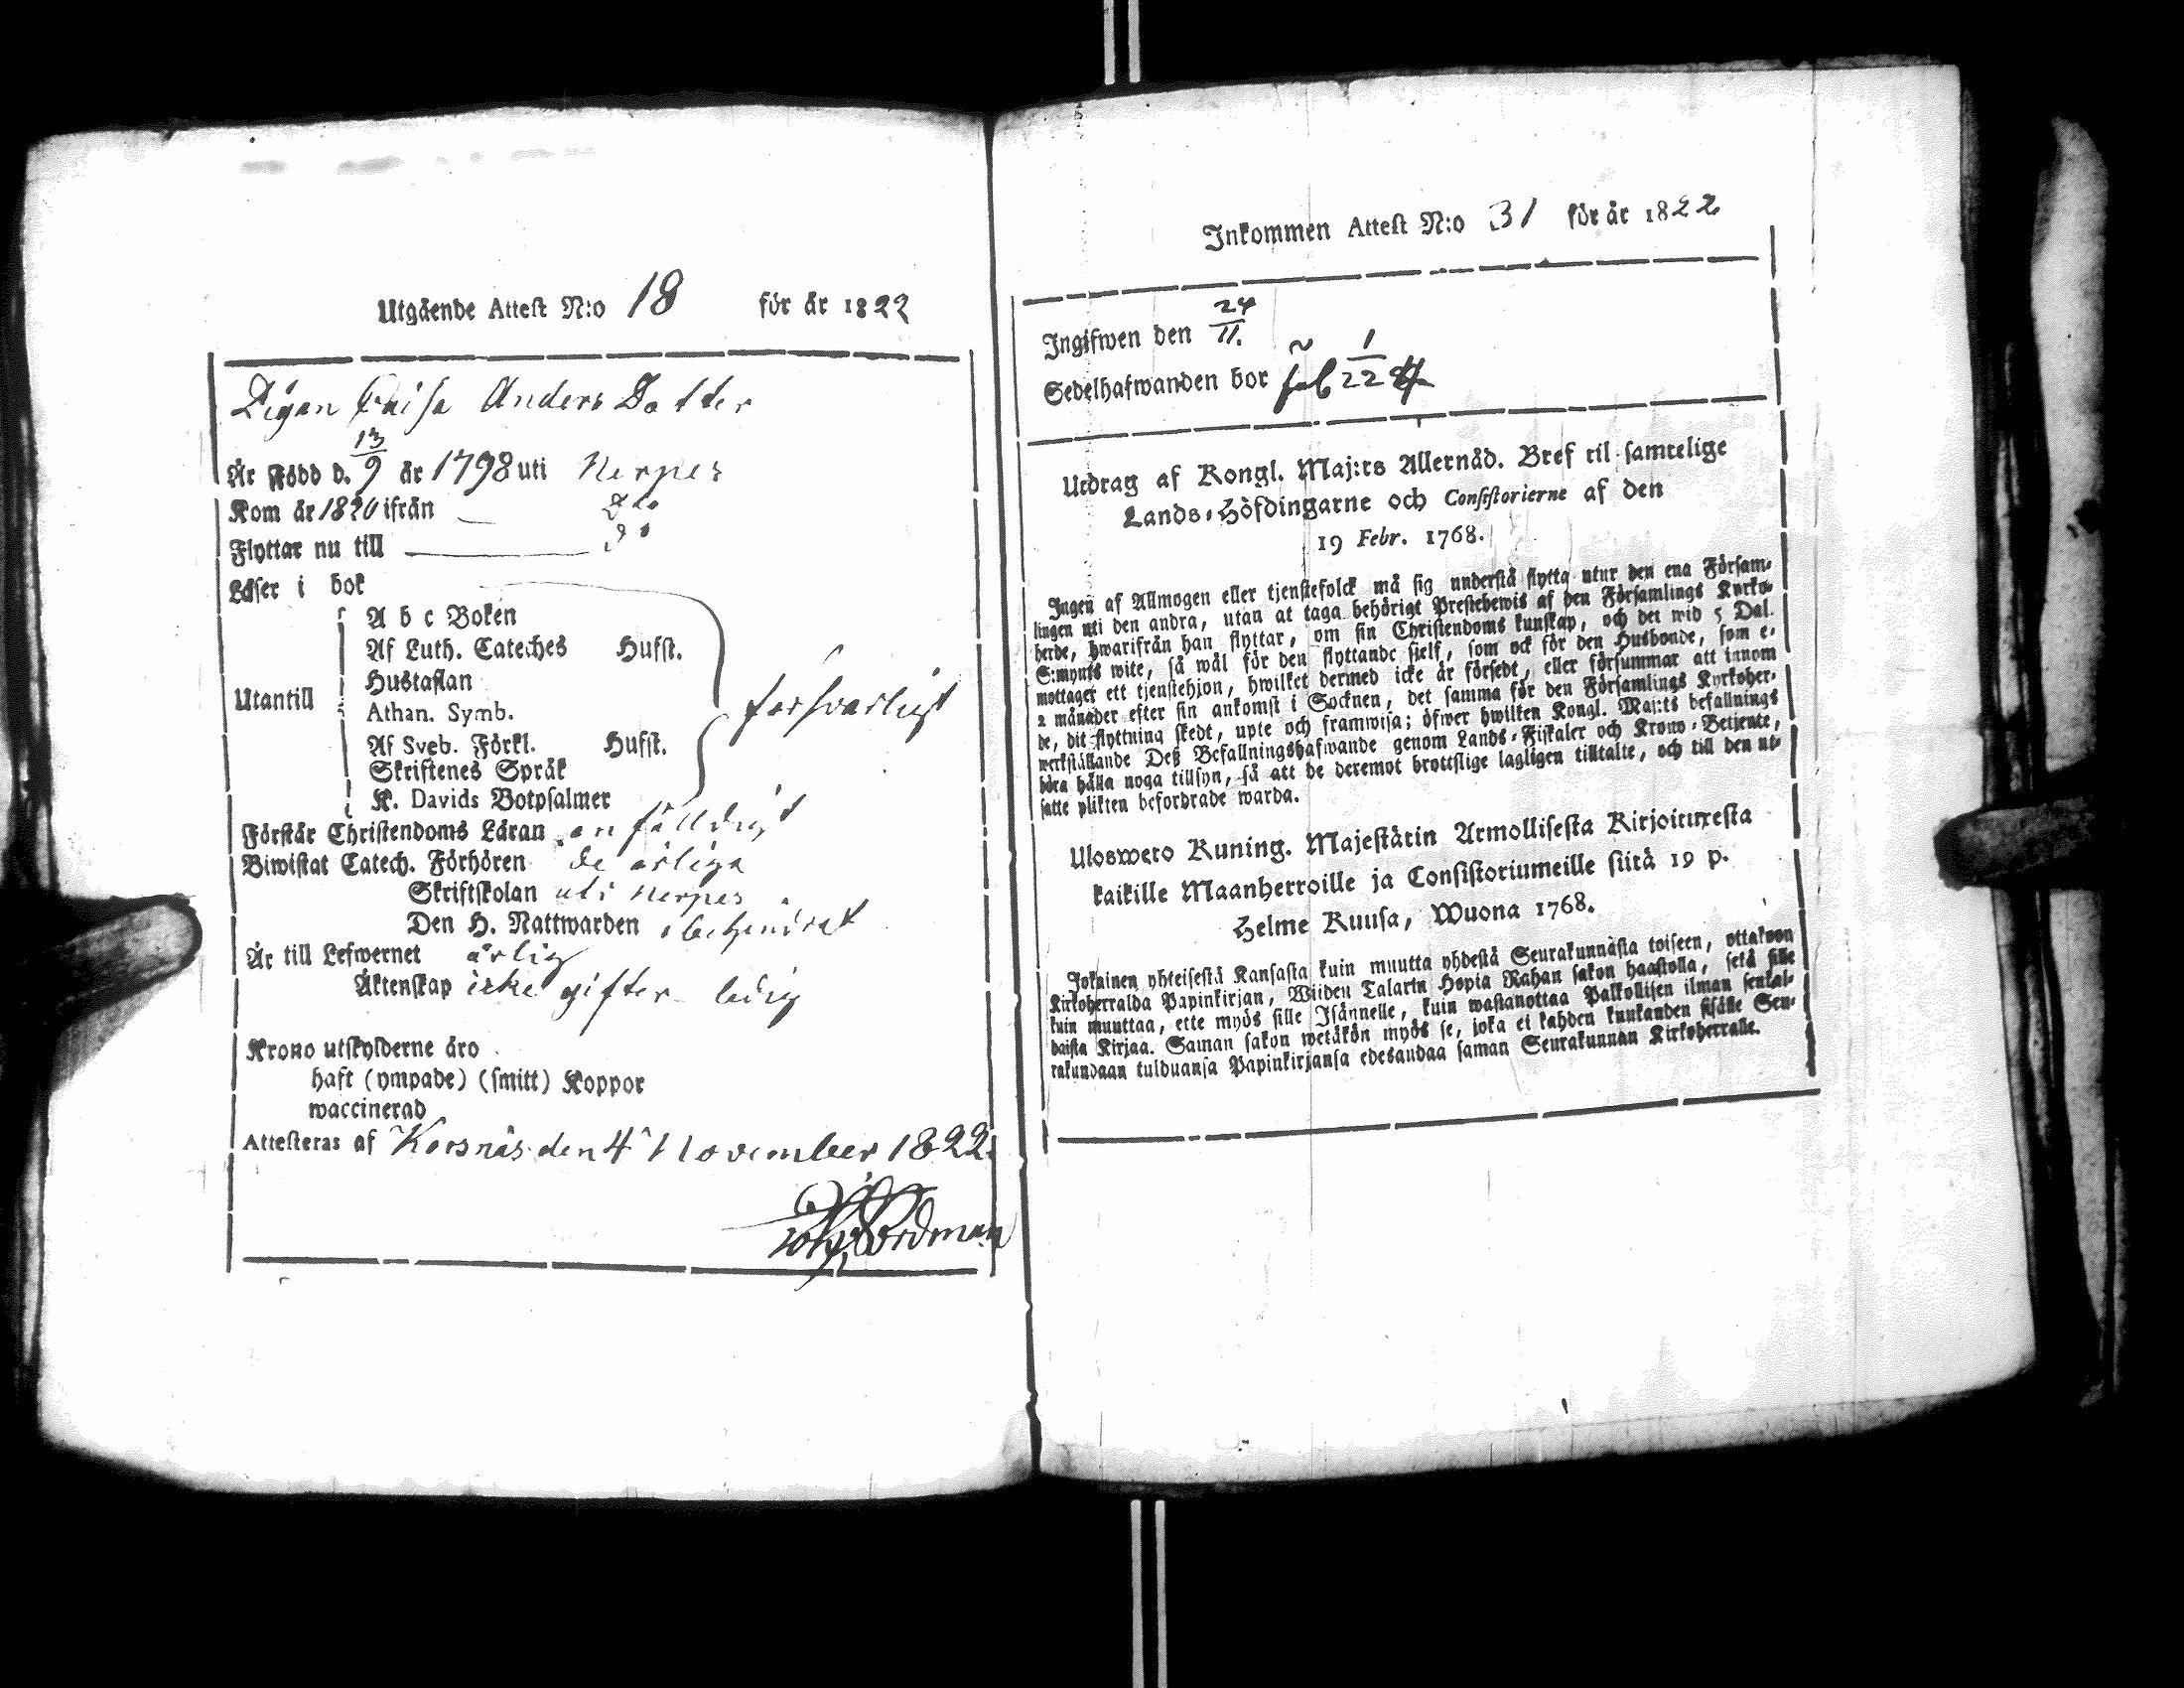 Utgående Attest N:o 18 för år 1822
Pigan Caisa Anders Dotter
Är Född d. 13/9 år 1798 uti Nerpes
Kom år 1820 ifrån — Do
Flyttar nu till — do
Läser i bok
Utantill
A b c Boken
Af Luth. Cateches Husst.
Hustaflan
Athan. Symb.
Af Sveb. Förkl. Husst.
Skriftenes Språk
K. Davids Botpsalmer
försvarligt
Förstår Christendoms Läran enfälldigt
Biwistat Catech. Förhören de årliga
Skriftskolan uti Nerpes
Den H. Nattwarden obehindrat
Är till Lefwernet ärlig
Äktenskap icke gifter ledig
Krono utskylderne äro
haft (ympade) (smitt) Koppor
waccinerad
Attesteras af Korsnäs den 4 November 1822.
Nordman
Inkommen Attest N:o 31 för år 1822
Ingifwen den 24/11.
Sedelhafwanden bor
Utdrag af Kongl. Maj:ts Allernåd. Bref til samtelige
Lands-Höfdingarne och Consistorierne af den
19 Febr. 1768.
Ingen af Allmogen eller tjenstefolck må sig understå flytta utur den ena Försam-
lingen uti den andra, utan at taga behörigt Prestebewis af den Församlings Kyrko-
herde, hwarifrån han flyttar, om sin Christendoms kunskap, och det wid 5 Dal.
S:mynts wite, så wäl för den flyttande sjelf, som ock för den Husbonde, som e-
mottager ett tjenstehjon, hwilket dermed icke är försedt, eller försummar att innom
2 månader efter sin ankomst i Socknen, det samma för den Församlings Kyrkoher-
de, dit flyttning skedt, upte och framwisa; öfwer hwilken Kongl. Maj:ts befallnings
werkställande Deß Befallningshafwande genom Lands-Fiskaler och Krono-Betjente,
böra hålla noga tillsyn, så att de deremot brottslige lagligen tilltalte, och till den ut-
satte plikten befordrade warda.
Uloswero Kuning. Majestätin Armollisesta Kirjoituxesta
kaikille Maanherroille ja Consistoriumeille siitä 19 p.
Helme Kuusa, Wuona 1768.
Jokainen yhteisestä Kansasta kuin muutta yhdestä Seurakunnasta toiseen, ottakoon
Kirkoherralda Papinkirjan, Wiiden Talarin Hopia Rahan sakon haastolla, setä sille
kuin muuttaa, ette myös sille Isännelle, kuin wastanottaa Palkollisen ilman senkal-
daista Kirjaa. Saman sakon wetäkön myös se, joka ei kahden kuukauden sisälle Seu-
rakundaan tulduansa Papinkirjansa edesandaa saman Seurakunnan Kirkoherralle.